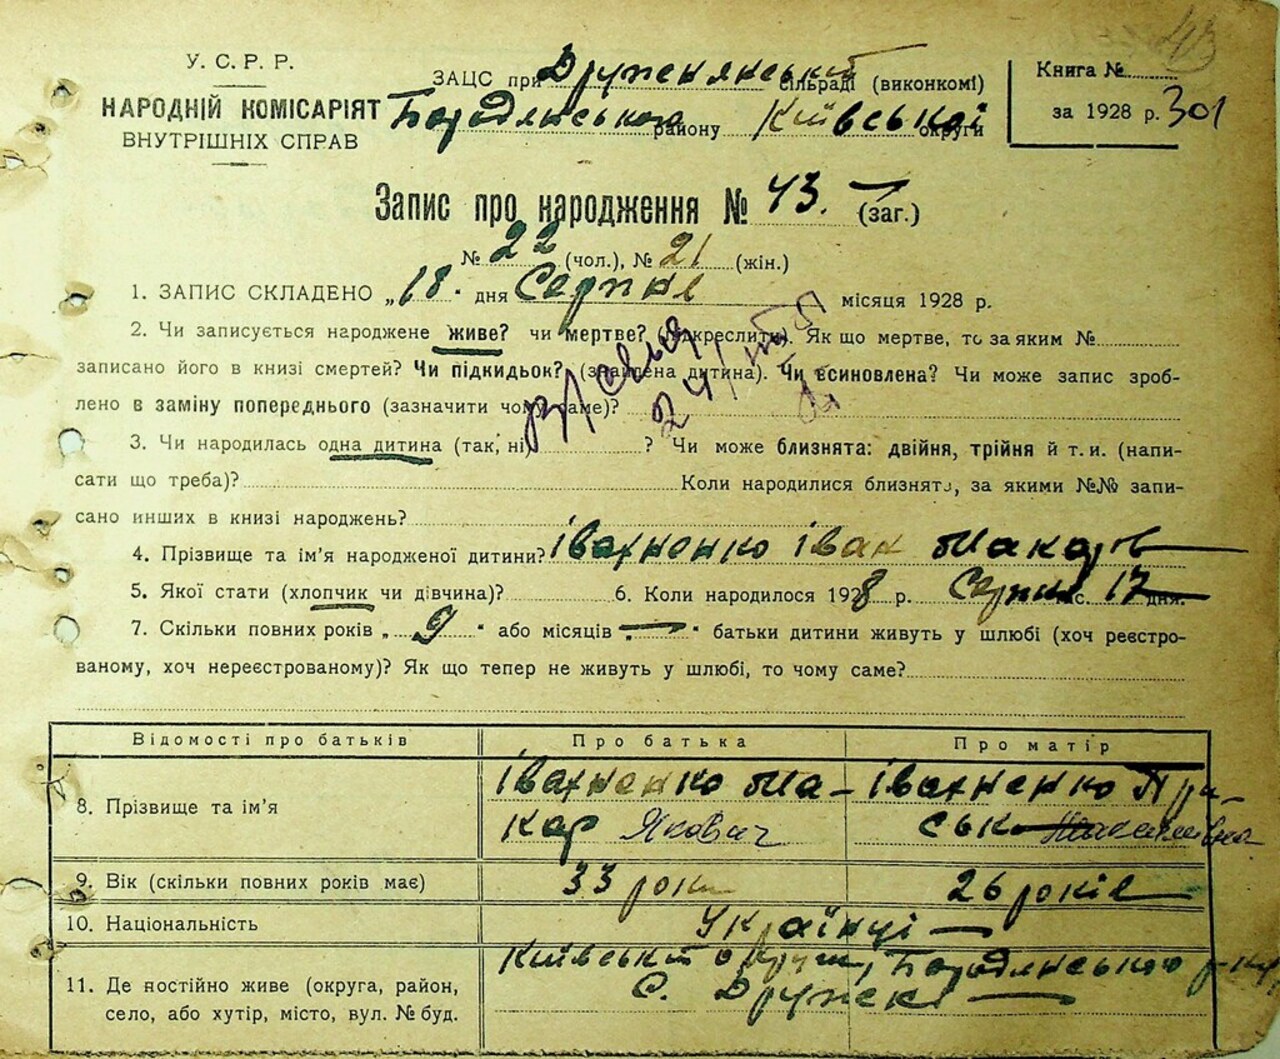 43
У. С. Р. Р.
НАРОДНІЙ КОМІСАРІЯТ
ВНУТРІШНІХ СПРАВ
ЗАЦС при Дружнянській сільраді (виконкомі)
Бородянського району Київської округи
Книга №
за 1928 р. 301
Запис про народження № 43. (заг.)
№ 22 (чол.), № 21 (жін.)
1. ЗАПИС СКЛАДЕНО „18" дня Серпня місяця 1928 р.
2. Чи записується народжене живе? чи мертве? (підкреслити). Як що мертве, то за яким №
записано його в книзі смертей? Чи підкидьок? (знайдена дитина). Чи всиновлена? Чи може запис зроб-
лено в заміну попереднього (зазначити чому саме)?
3. Чи народилась одна дитина (так, ні) ? Чи може близнята: двійня, трійня й т. и. (напи-
сати що треба)? Коли народилися близнята, за якими №№ запи-
сано инших в книзі народжень?
4. Прізвище та ім’я народженої дитини? Івахненко Іван Макаров
5. Якої стати (хлопчик чи дівчина)? 6. Коли народилося 1928 р. Серпня міс. 17 дня.
7. Скільки повних років „ 9 " або місяців „ — " батьки дитини живуть у шлюбі (хоч реєстро-
ваному, хоч нереєстрованому)? Як що тепер не живуть у шлюбі, то чому саме?
Відомості про батьків Про батька Про матір
8. Прізвище та ім’я Івахненко Ма- Івахненко Пра-
кар Якович ська
9. Вік (скільки повних років має) 33 роки 26 років
10. Національність Українці
11. Де постійно живе (округа, район, Київської округи, Бородянського р-ну
село, або хутір, місто, вул. № буд. С. Дружня